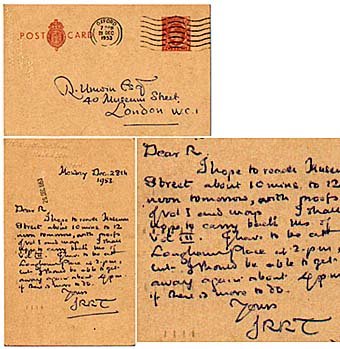 POST CARD
OXFORD
7 PM
DEC
1953
R. Unwin Esq
40 Museum Street
London W.C.1
Monday Dec. 28th
1953.
Dear R.
I hope to reach Museum
Street about 10 mins to 12
noon tomorrow, with proofs
of vol I and map. I shall
hope to carry back MS of
Vol III. I have to be at
Langham Place at 2.p.m.
but I should be able to get
away again about 4 p.m.
if there is more to do.
Yours
JRRT
Dear R.
I hope to reach Museum
Street about 10 mins to 12
noon tomorrow, with proofs
of vol I and map. I shall
hope to carry back MS of
Vol III. I have to be at
Langham Place at 2.p.m. s
but I should be able to get
away again about 4 p.m.
if there is more to do.
Yours
JRRT